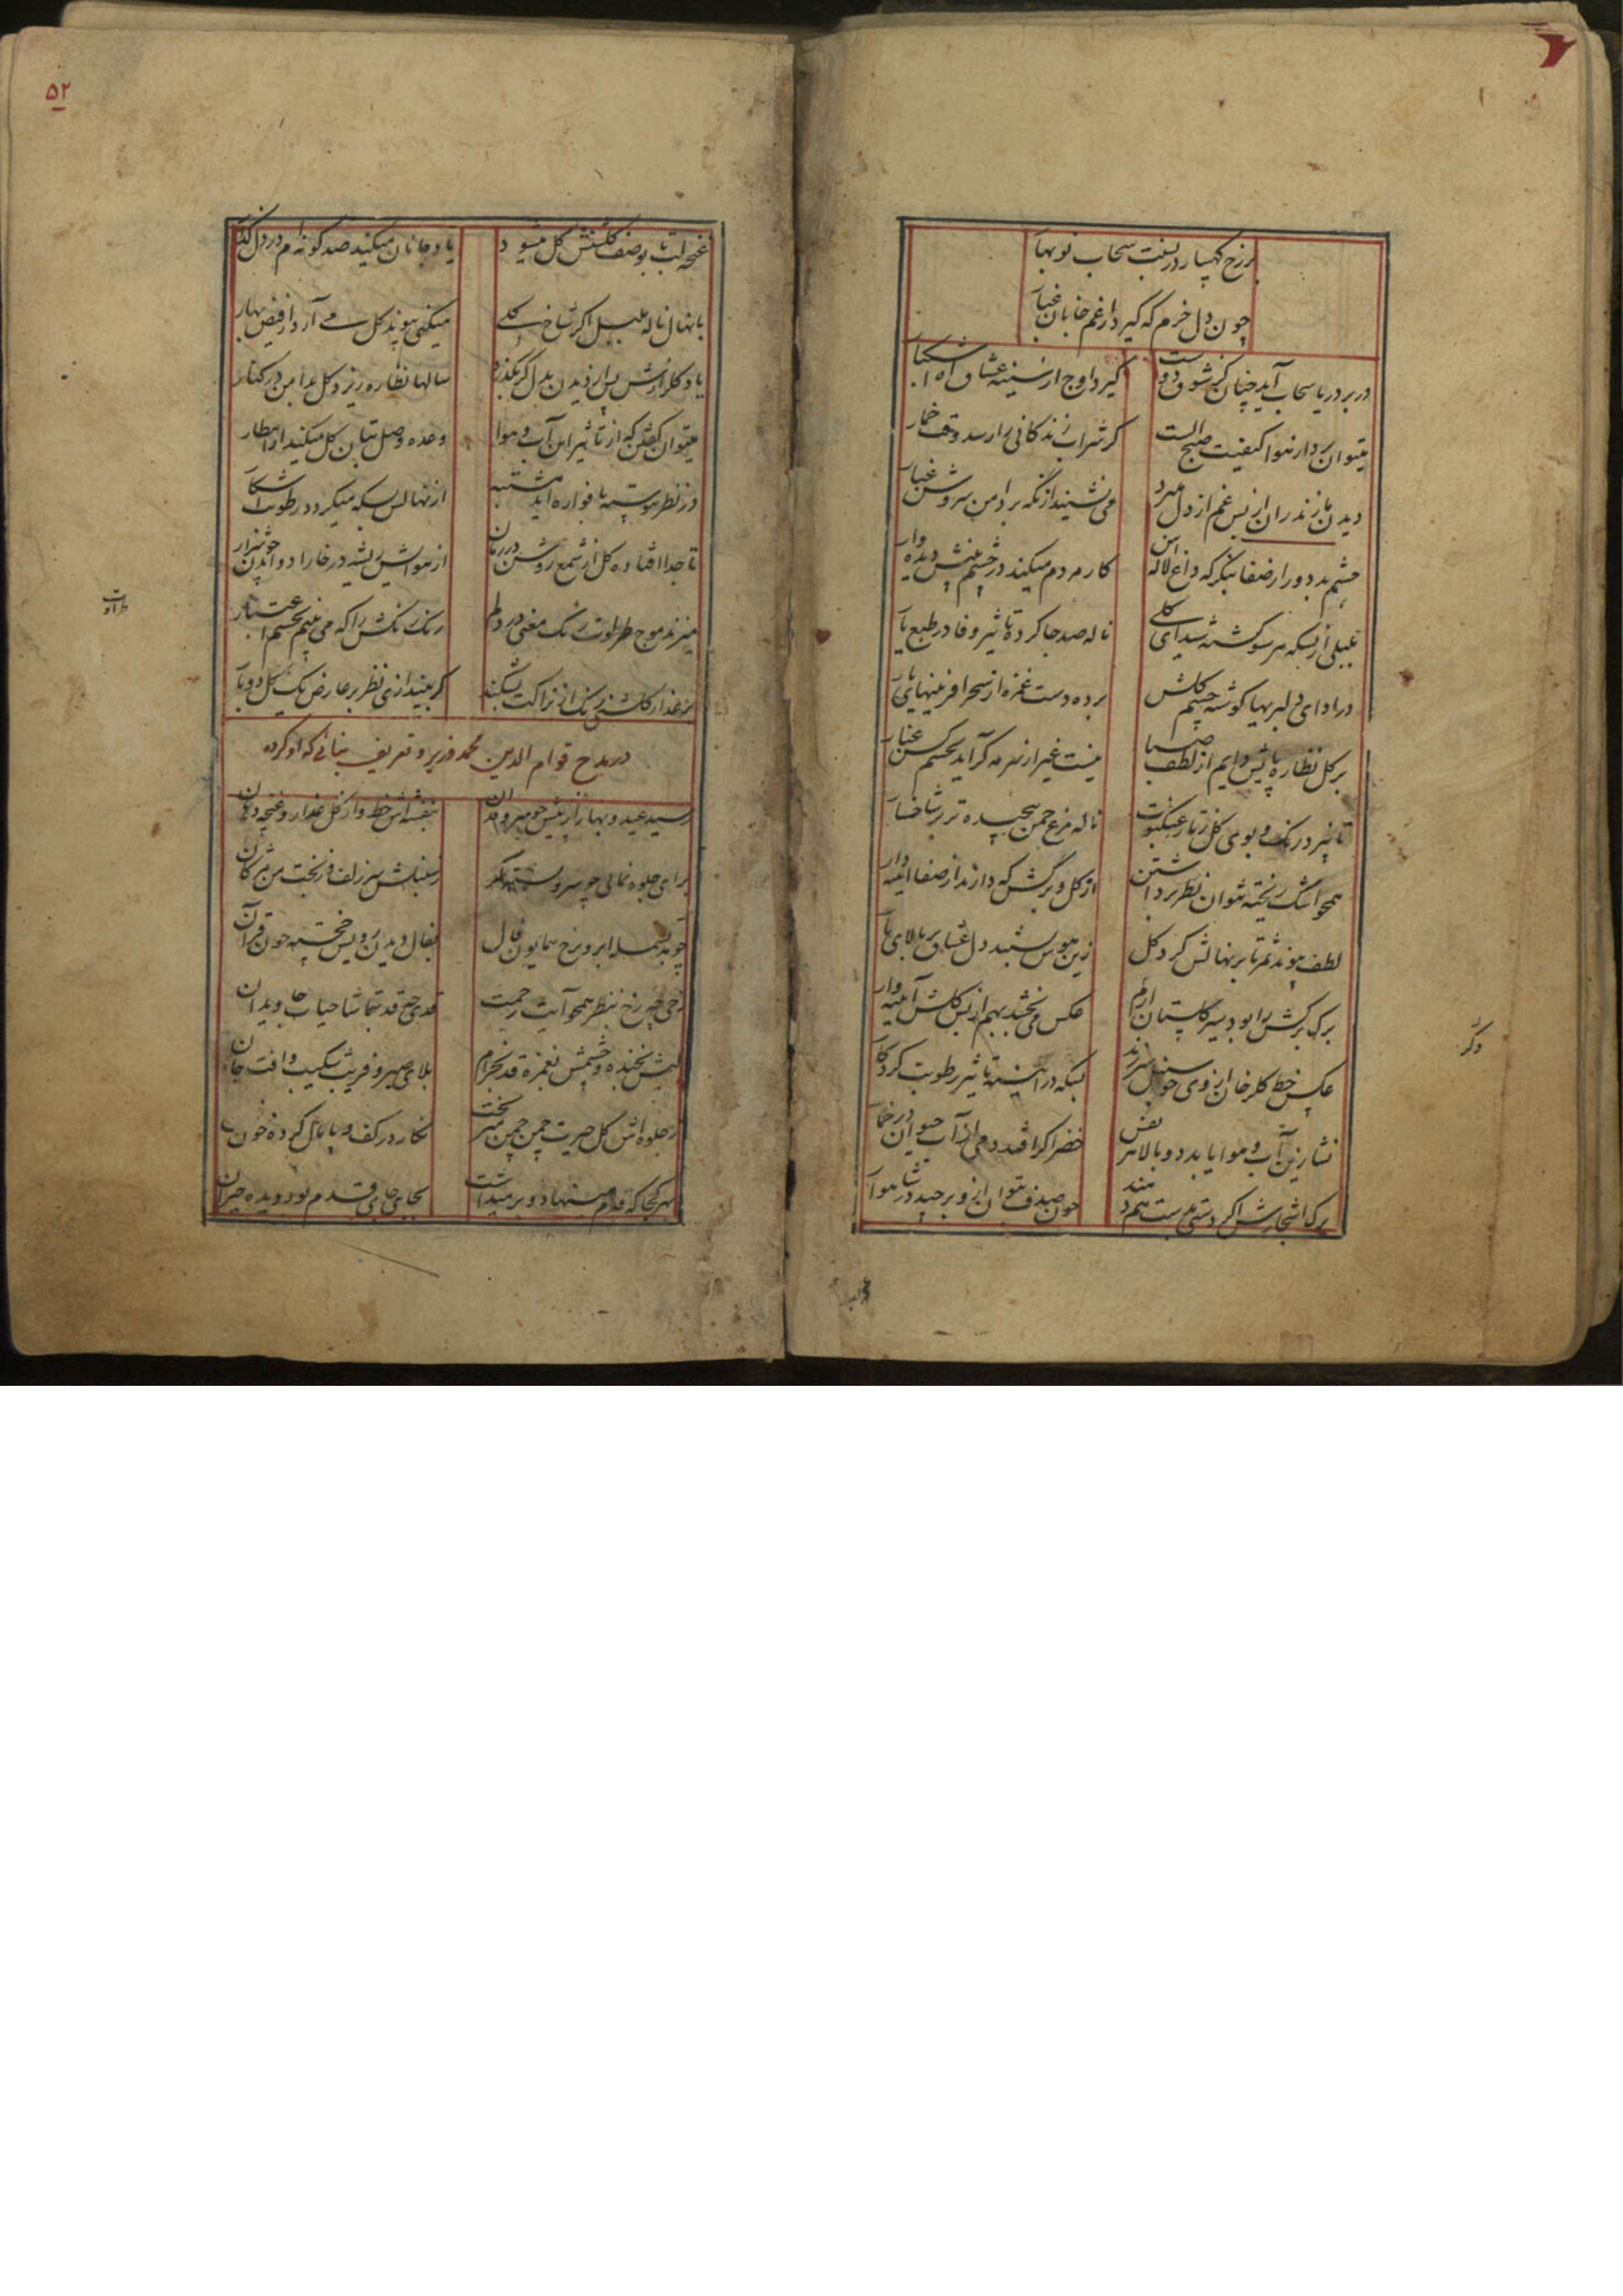 بر رخ کهسار در بست سحاب نوبهار
چون دل خرم که گیرد از غم خابان غبار
در بر دریا سحاب آید چنان کز شوق دوست
گیرد اوج از سینه عشاق آه
میتوان بردار هوا کیفیت صبح الست
کر شراب زندکانی را رسد وقت خمار
دیدن مازندران از بس غم از دل میبرد
می نشیند از نکه بر دامن سروش غبار
چشم بد دور از صفا بنکر که داغ لاله اش
کار مردم میکند در چشم بینش دیده وار
بلبلی از بسکه هر سو کشته شیدای کلی
ناله صد جا کرده تاثیر وفا در طبع یار
در ادای دلبریها کوشه چشم کلش
برده دست غمزه از سحر آفرینیهای یار
بر کل نظاره پاشیدایم از لطف صبا
نیست غیر از سرمه کر آید بچشم کس غبار
تا نپیچد رنگ و بوی کل ز تار عنکبوت
ناله مرغ چمن پیچیده تر بر شاخسار
همچو اشک ریخته نتوان نظر برداشتن
از کل و برکش که دارند از صفا آئینه دار
لطف پیوند ثمر تا بر نهالش کرد کل
زین هوس شد دل عشاق بر بالای یار
برک برکش را بود سیر کلستان ارم
عکس می بخشد بهم از بس کلش آئینه وار
عکس خط کلرخان از وی چو سنبل سر زند
بسکه در آئینه تاثیر رطوبت کرد کار
نشا زین آب و هوا یابد دو بالا هر نفس
خضر اکر افتد دمی از آب حیوان در خمار
برک اشجارش اکر دستی بدست هم دهند
چون صدف بتوان ازو برچید در شاهوار
دکر
غنچه
۵۲
غنچه لب تا بوصف کلشنش کل میشود
یاد جانان میکند صد کونه ام در دل کذار
با نهال ناله بلبل اکر شاخ کلی
میکنی پیوند کل می آرد از فیض بهار
یاد کلزارش پس از دیدن بدل کر بکذرد
سالها نظاره ریزد کل بدامن در کنار
میتوان کفتن که از تاثیر این آب و هوا
وعده وصل بتان کل میکند از انتظار
در نظر پیوسته با فواره آید مشتبه
از نهالش بسکه میکردد رطوبت آشکار
تا جدا افتاده کل از شمع روشن در زمان
از هوایش ریشه در خارا دواندن
میزند موج طراوت رنگ معنی در دلم
رنک رنکش را که می بینم بچشم اعتبار
طراوت
بر عذار کلشنش رنک از نزاکت بشکند
کر ببیند از پی نظر بر عارض یک کل دو بار
در مدح قوام الدین محمد وزیر و تعریف بنائی که او کرده
رسید عید و بهار از پیش چو سرو روان
بنفشه اش خط و از کل عذار و غنچه دهان
برای جلوه نمائی چو سرو بسته کمر
ز سنبلش سر زلف و ز نخت من مژکان
چو بسمله ابرو رخ همایون فال
بفال دیدن رویش خجسته چون قرآن
رخی چه رخ بنظر همچو آیت رحمت
قدی چه قد بتماشا حیات جاویدان
لبش بخنده و چشمش بغمزه قد بخرام
بلای صبر و فریب شکیب و افت جان
ز جلوه اش کل حیرت چمن چمن میریخت
نکار در کف و پایمال کرده خون
بهر کجا که قدم مینهاد و بر میداشت
بجای جای قدم بود دیده حیران